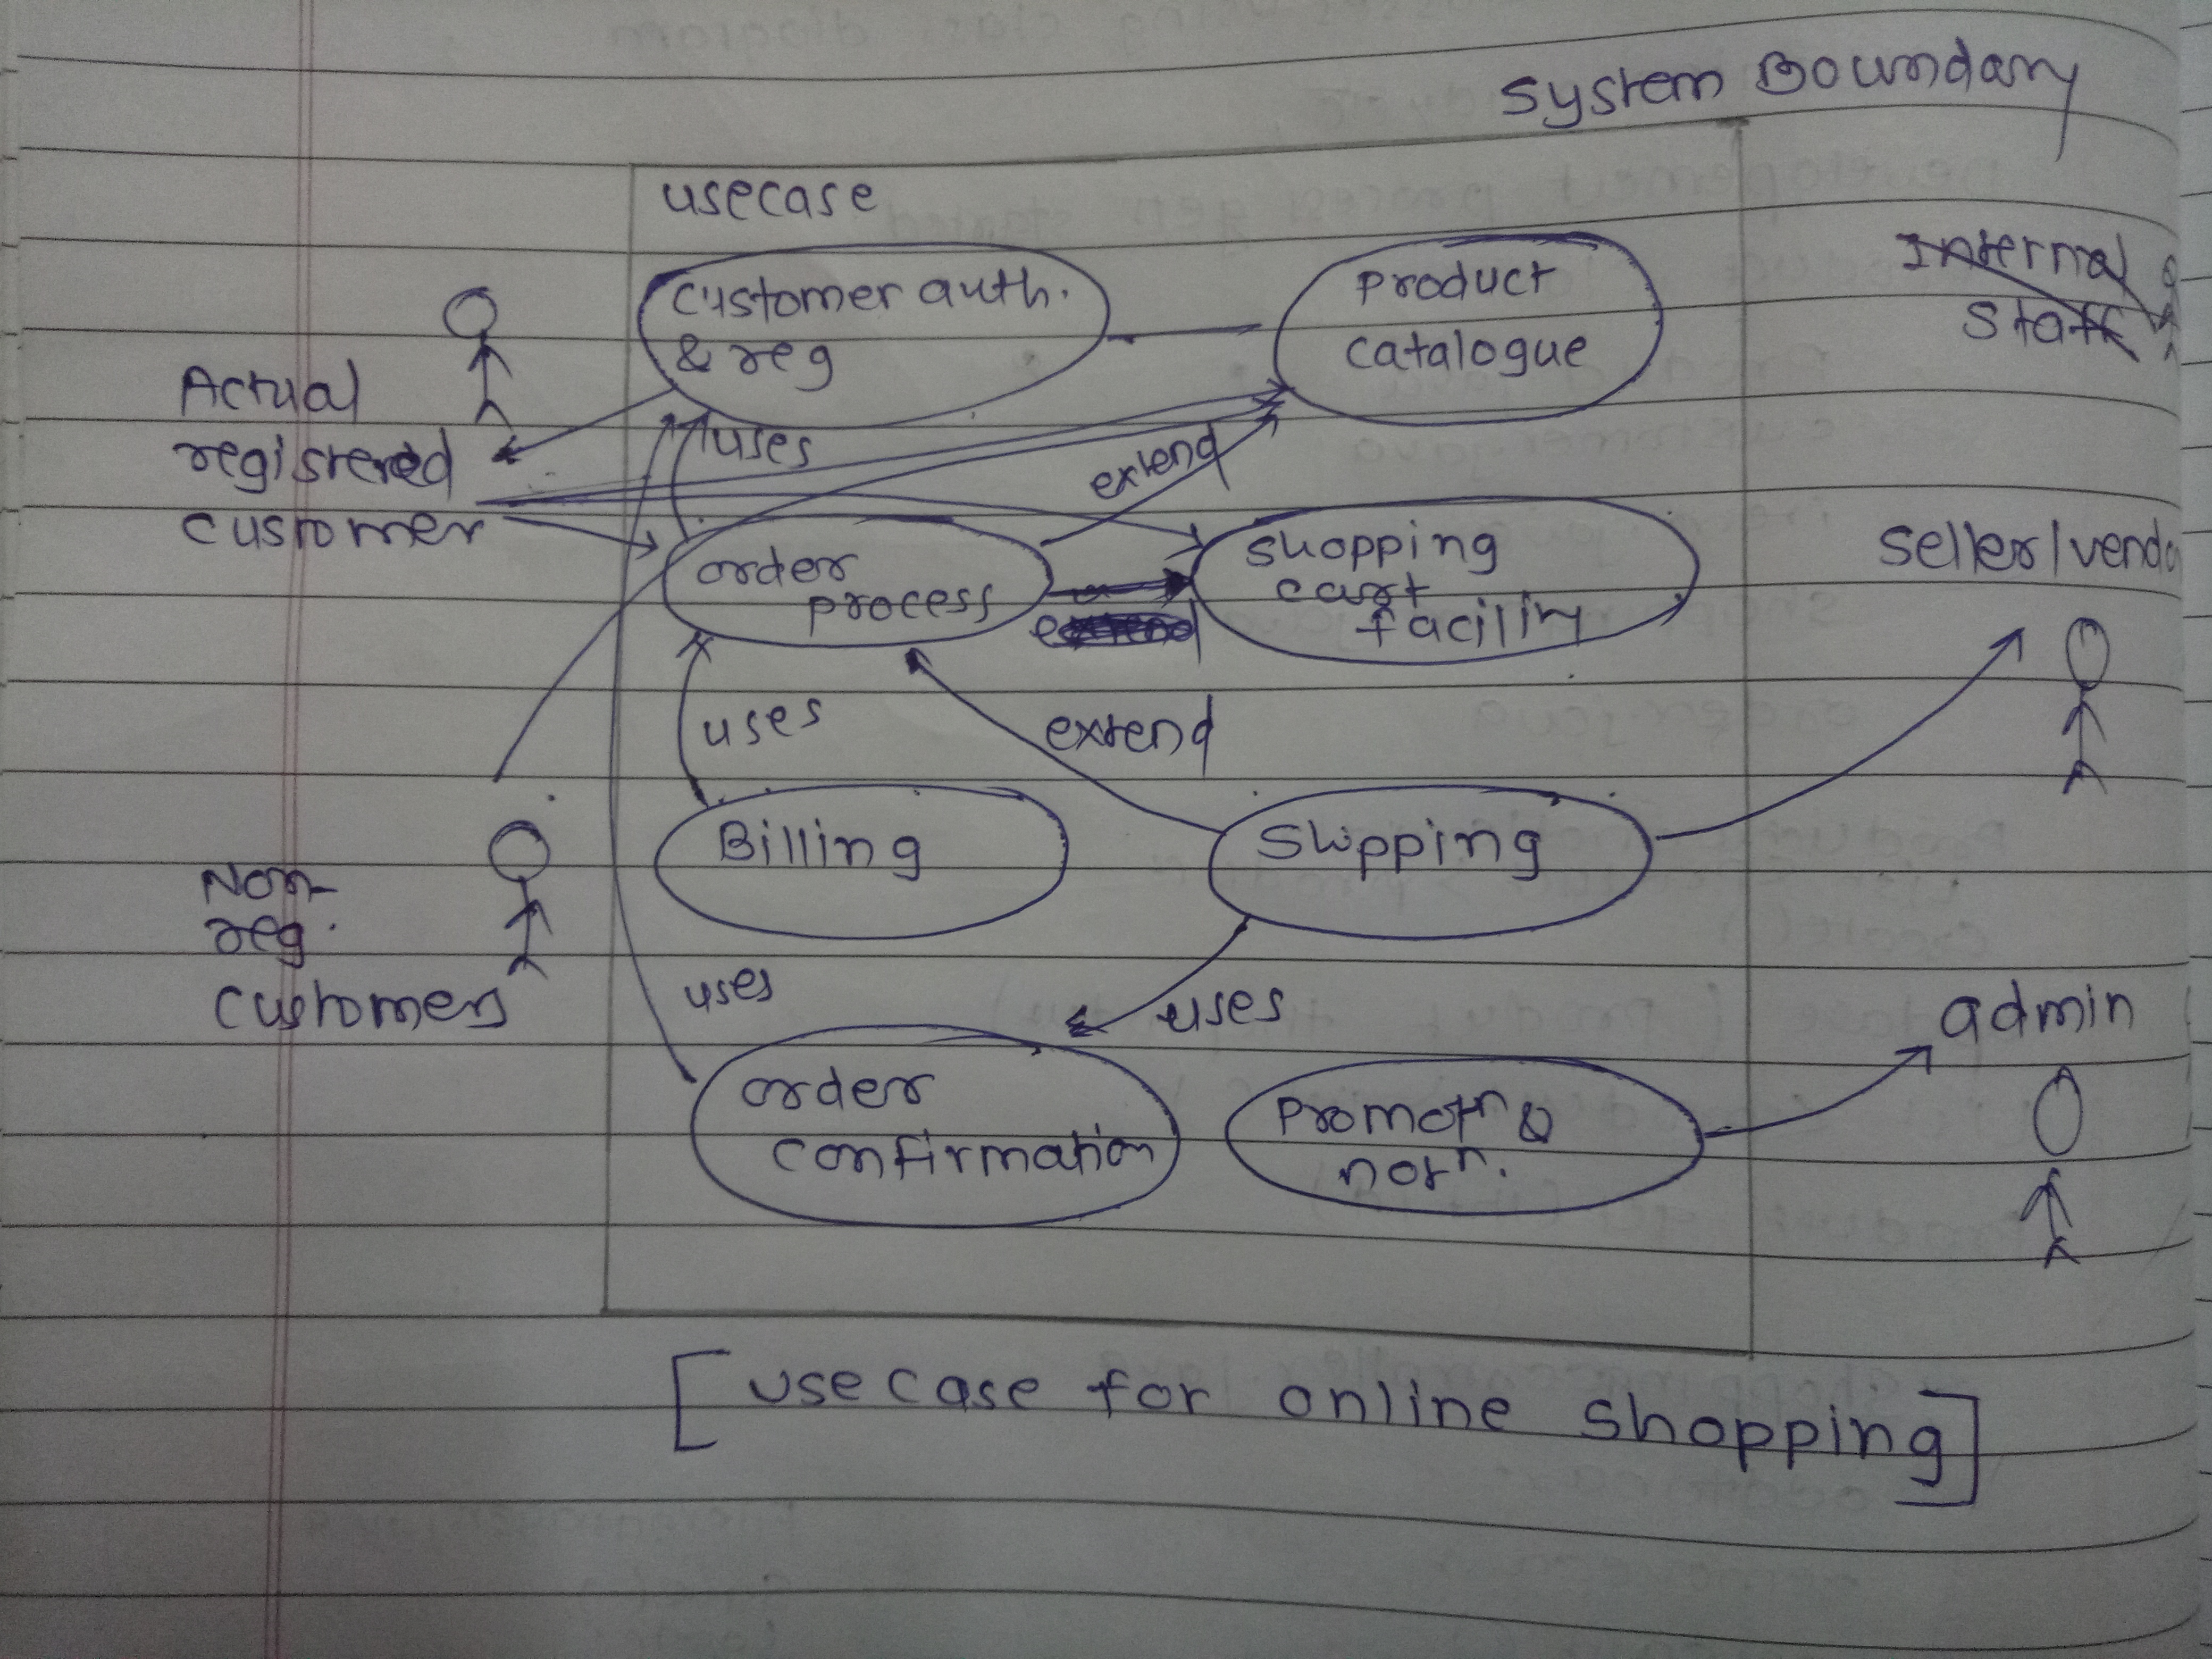 System Boundary
usecase
Customer auth.
& reg
Product
catalogue
Internal
Staff
Actual
registered
customer
uses
extend
order
process
shopping
cart
facility
extend
Seller/vendo
uses
extend
Billing
Shipping
Non-
reg.
Customers
uses
uses
admin
order
confirmation
Promotn &
notn.
[use case for online shopping]